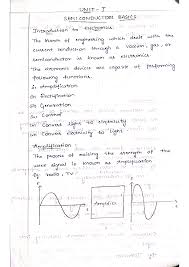 UNIT - I
SEMICONDUCTORS BASICS
Introduction to electronics:
The branch of engineering which dealt with the
current conduction through a vacuum, gas, or
semiconductor is known as electronics.
The electronic devices are capable of performing
following functions.
i) Amplification
ii) Rectification
iii) Generation
iv) Control
v) Convert light to electricity
vi) Convert electricity to light
Amplification:
The process of raising the strength of the
wave signal is known as Amplification
Eg: radio, TV
Amplifier